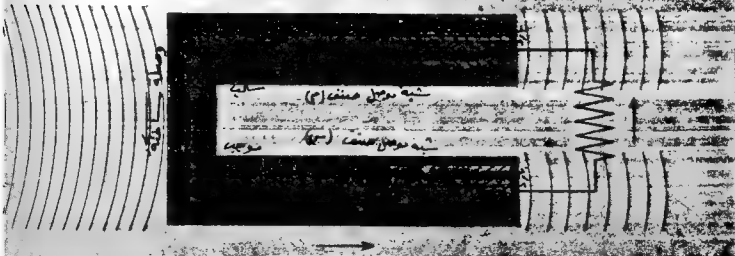 وصلة ساخنة
سالب
شبه موصل صنف (م)
شبه موصل صنف (س)
موجب